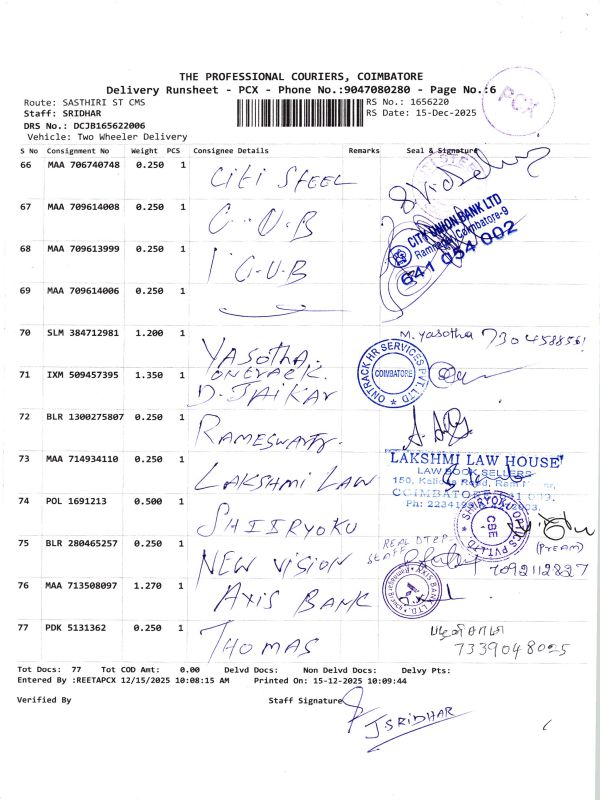 THE PROFESSIONAL COURIERS, COIMBATORE
Delivery Runsheet - PCX - Phone No.:9047080280 - Page No.:6
Route: SASTHIRI ST CMS
RS No.: 1656220
Staff: SRIDHAR
RS Date: 15-Dec-2025
PCX
DRS No.: DCJB165622006
Vehicle: Two Wheeler Delivery
S No Consignment No Weight PCS Consignee Details Remarks Seal & Signature
66 MAA 706740748 0.250 1 Citi Steel
67 MAA 709614008 0.250 1 C.U.B
CITY UNION BANK LTD
Ramnagar, Coimbatore-9
641 054 002
68 MAA 709613999 0.250 1 C.U.B
69 MAA 709614006 0.250 1
70 SLM 384712981 1.200 1 YASOTHA.
M. Yasotha 7304588561
71 IXM 509457395 1.350 1 ONTRACK.
D. JAIKAR
ONTRACK HR SERVICES PVT. LTD
COIMBATORE
72 BLR 1300275807 0.250 1
73 MAA 714934110 0.250 1 LAKSHMI LAW
LAKSHMI LAW HOUSE
LAW BOOK SELLERS
150, Road,
COIMBATORE
74 POL 1691213 0.500 1 SHIIRYOKU
CBE
75 BLR 280465257 0.250 1 NEW VISION
STAFF
7092112827
76 MAA 713508097 1.270 1 AXIS BANK
AXIS BANK LTD.
77 PDK 5131362 0.250 1 THOMAS
7339048025
Tot Docs: 77 Tot COD Amt: 0.00 Delvd Docs: Non Delvd Docs: Delvy Pts:
Entered By :REETAPCX 12/15/2025 10:08:15 AM Printed On: 15-12-2025 10:09:44
Verified By Staff Signature
J SRIDHAR